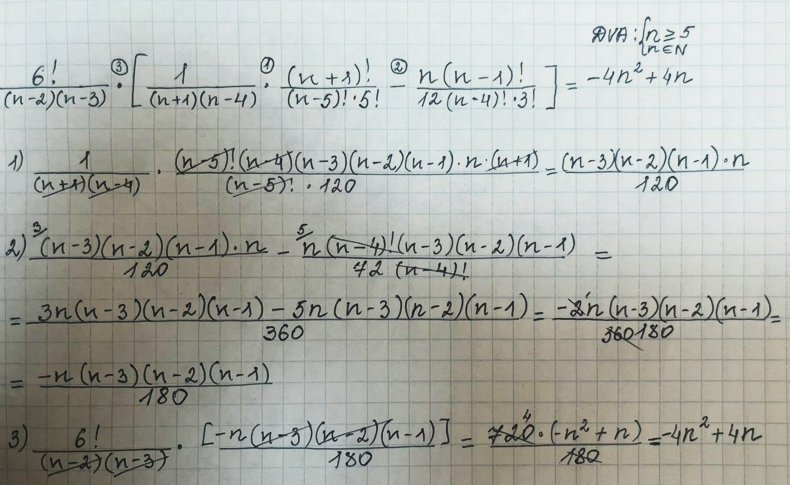 DVA: { n ≥ 5
n ∈ N
6! / (n-2)(n-3) ·③ [ 1 / (n+1)(n-4) ·① (n+1)! / (n-5)!·5! -② n(n-1)! / 12(n-4)!·3! ] = -4n² + 4n
1) 1 / (n+1)(n-4) · (n-5)!(n-4)(n-3)(n-2)(n-1)·n·(n+1) / (n-5)!·120 = (n-3)(n-2)(n-1)·n / 120
2) 3/ (n-3)(n-2)(n-1)·n / 120 - 5/ n(n-4)!(n-3)(n-2)(n-1) / 72(n-4)! =
= 3n(n-3)(n-2)(n-1) - 5n(n-3)(n-2)(n-1) / 360 = -2 1 n(n-3)(n-2)(n-1) / 360 180 =
= -n(n-3)(n-2)(n-1) / 180
3) 6! / (n-2)(n-3) · [-n(n-3)(n-2)(n-1)] / 180 = 720 4 ·(-n²+n) / 180 = -4n² + 4n